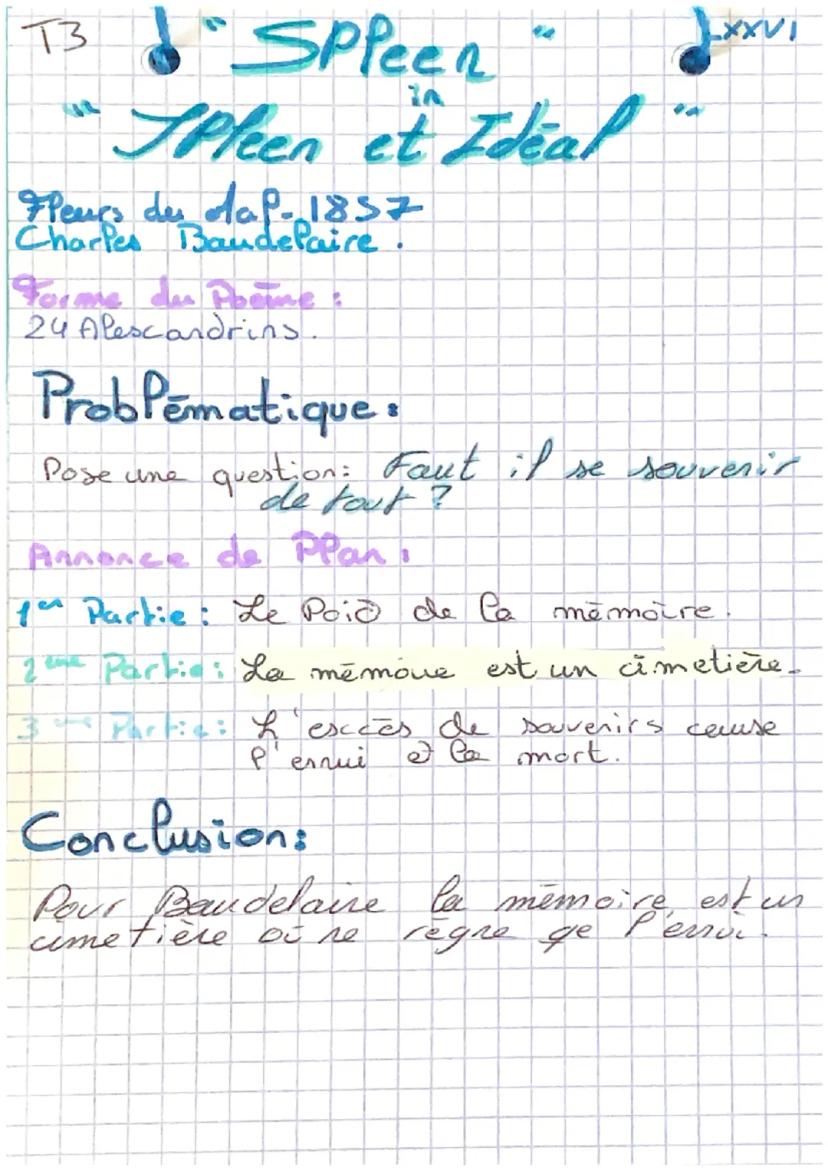 T3 "Spleen" LXXVI
in
"Spleen et Idéal"
Fleurs du Mal - 1857
Charles Baudelaire.
Forme du Poème :
24 Alescandrins.
Problématique :
Pose une question : Faut il se souvenir
de tout ?
Annonce de Plan :
1er Partie : Le Poid de la mémoire.
2ème Partie : La mémoire est un cimetière.
3ème Partie : L'esccès de souvenirs cause
l'ennui et la mort.
Conclusion :
Pour Baudelaire la mémoire est un
cimetière où ne règne qe l'ennui.